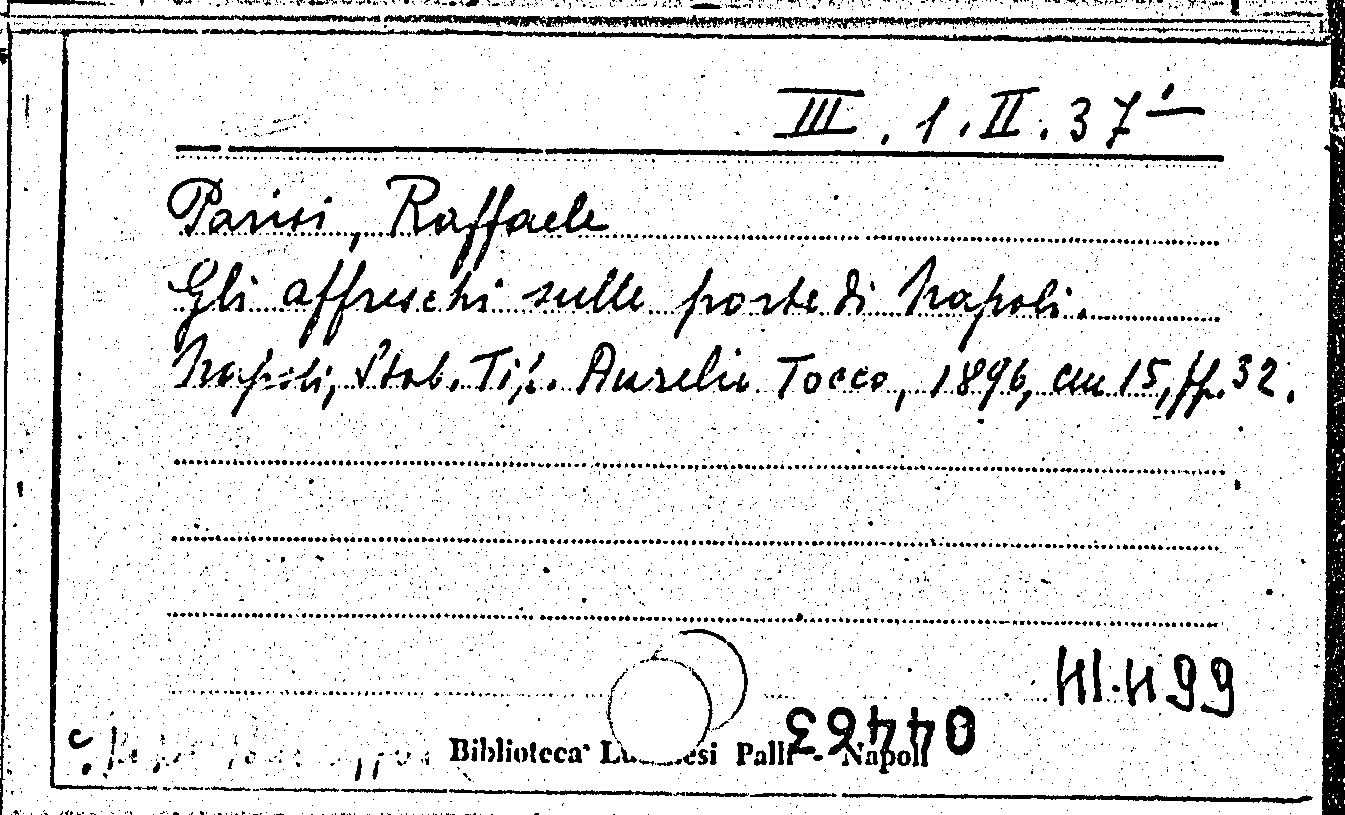 III. 1. II. 37'-
Parisi, Raffaele
Gli affreschi sulle porte di Napoli.
Napoli, Stab. Tip. Aurelio Tocco, 1896, cm 15, pp. 32.
41.499
Biblioteca Lu esi Palli - Napoli